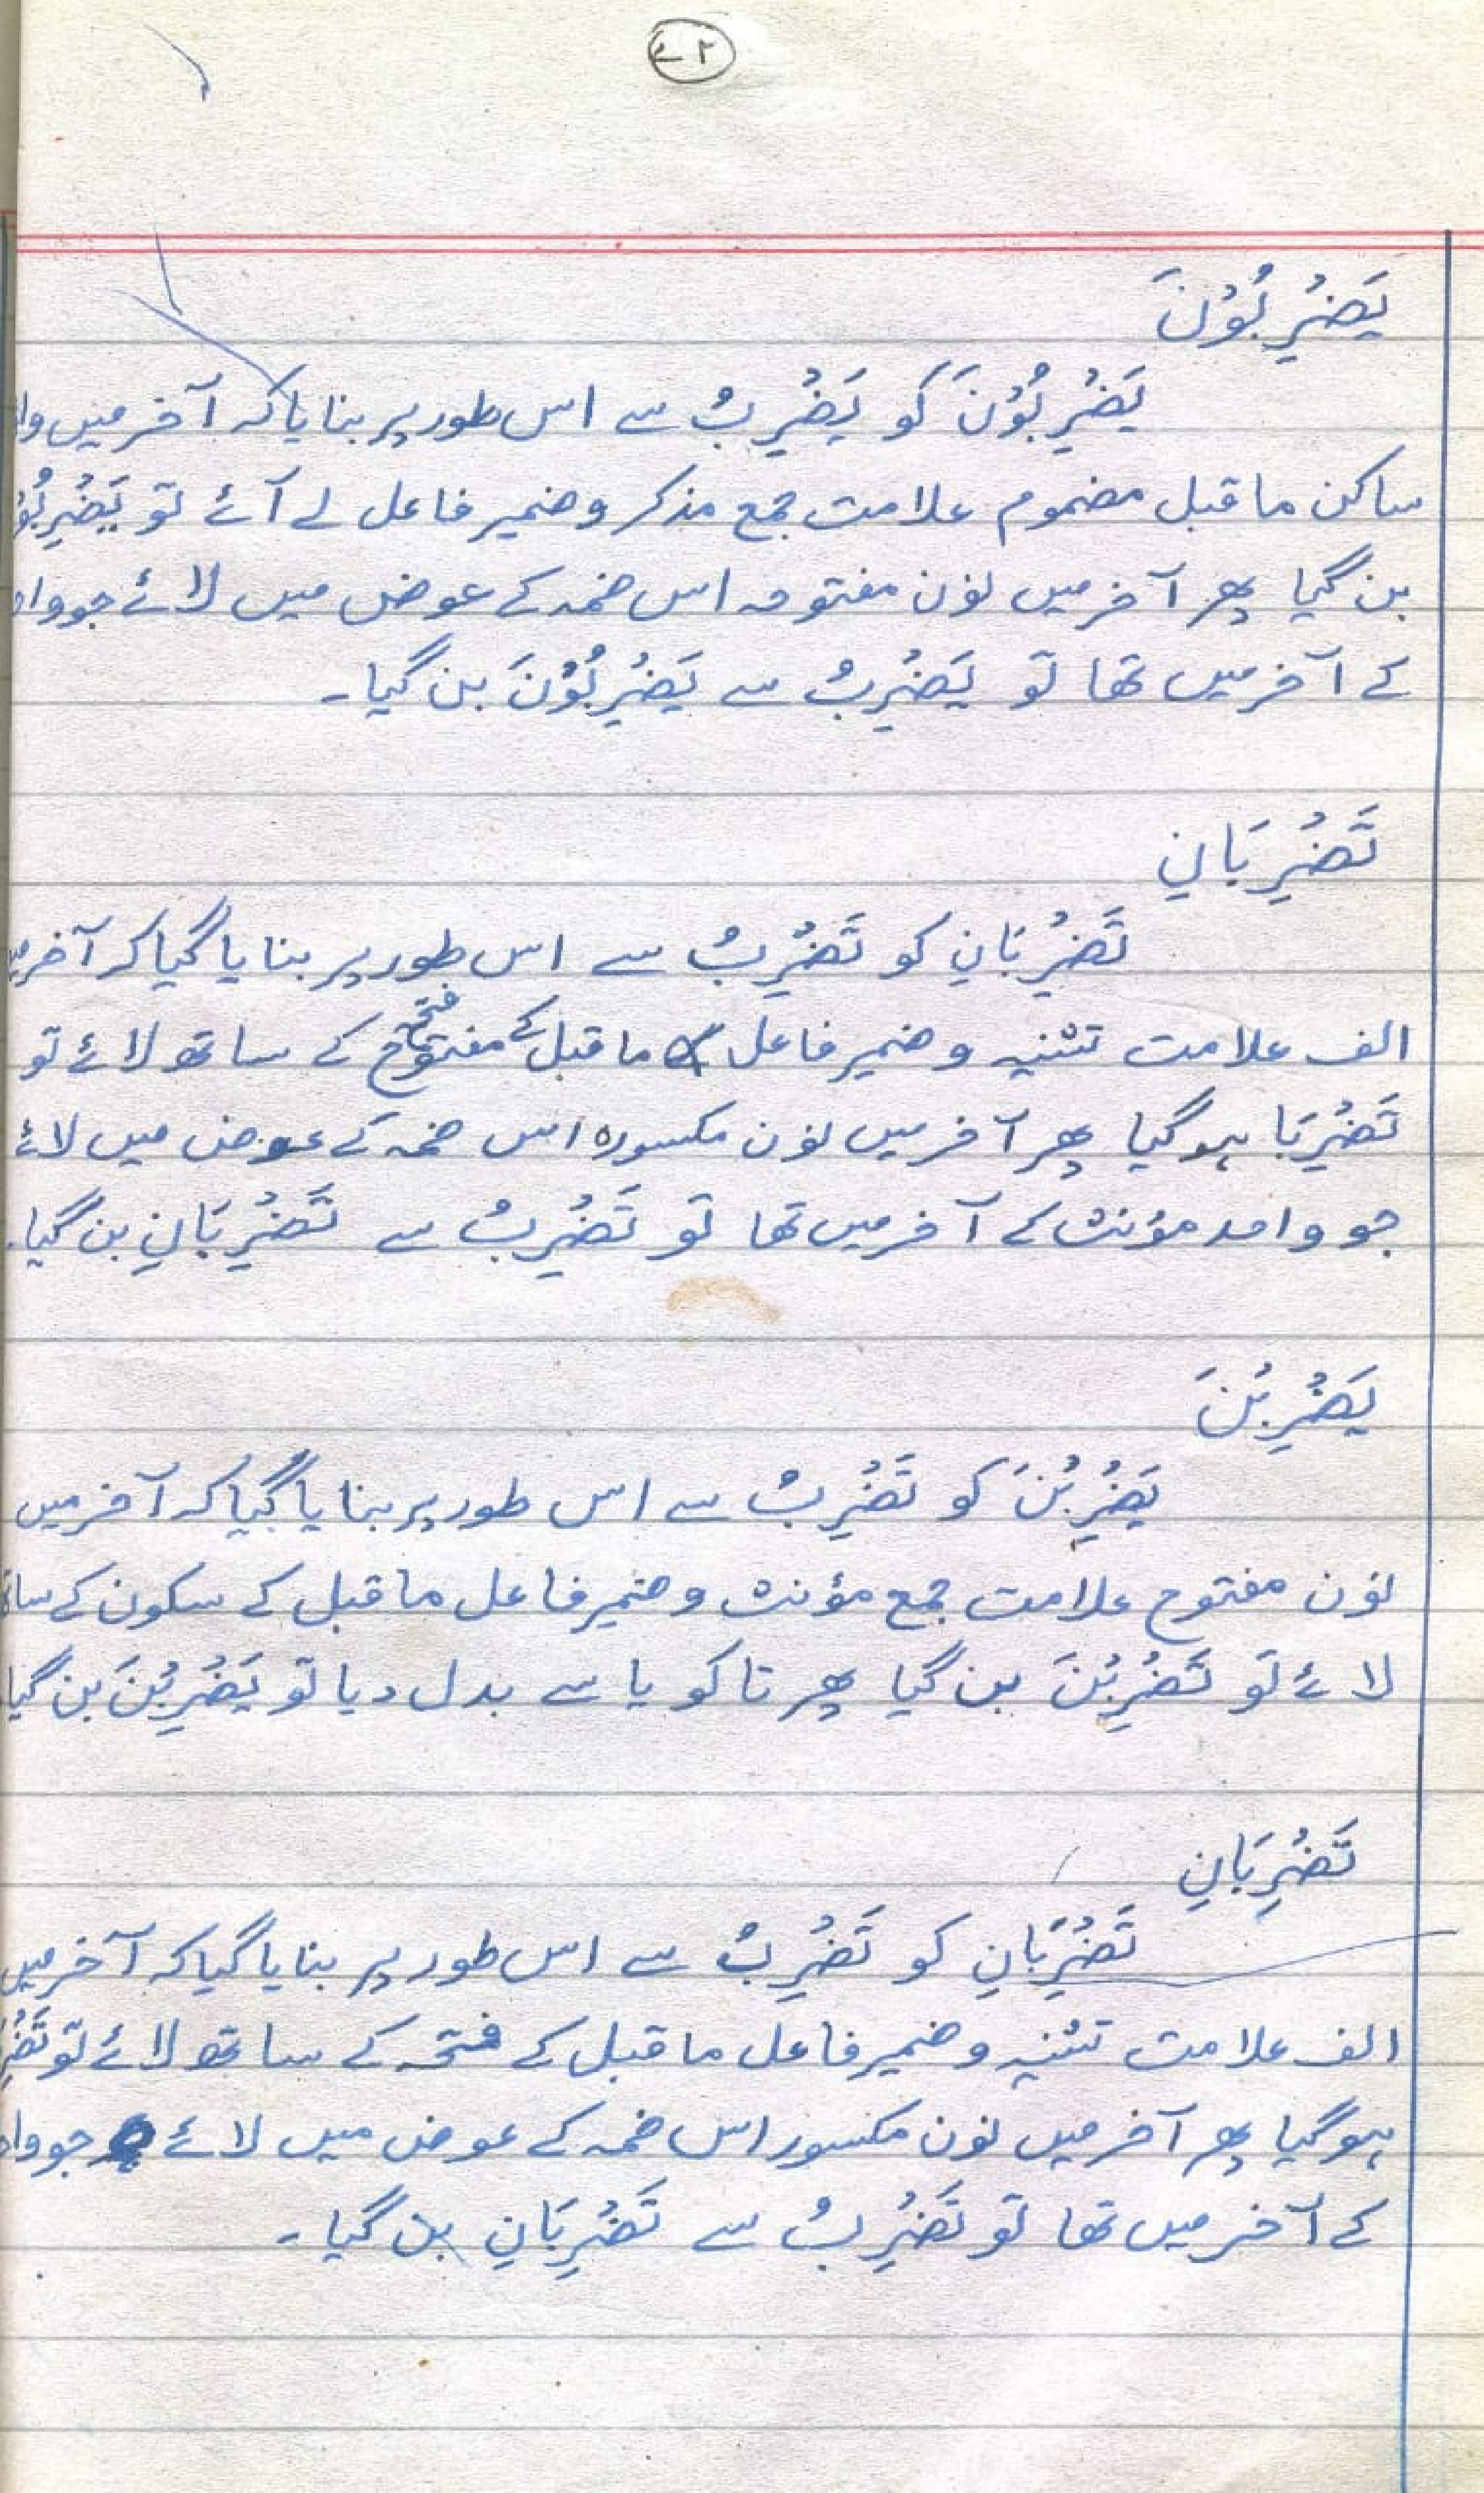 ۷۲
يَضْرِبُوْنَ
يَضْرِبُوْنَ کو يَضْرِبُ سے اس طور پر بنایا کہ آخر میں وا
ساکن ماقبل مضموم علامت جمع مذکر و ضمیر فاعل لے آئے تو يَضْرِبُوْ
بن گیا پھر آخر میں نون مفتوحہ اس ضمہ کے عوض میں لائے جو واد
کے آخر میں تھا تو يَضْرِبُ سے يَضْرِبُوْنَ بن گیا۔
تَضْرِبَانِ
تَضْرِبَانِ کو تَضْرِبُ سے اس طور پر بنایا گیا کہ آخر میں
الف علامت تثنیہ و ضمیر فاعل ماقبل کے فتحہ کے ساتھ لائے تو
تَضْرِبَا ہو گیا پھر آخر میں نون مکسورہ اس ضمہ کے عوض میں لائے
جو واحد مؤنث کے آخر میں تھا تو تَضْرِبُ سے تَضْرِبَانِ بن گیا۔
يَضْرِبْنَ
يَضْرِبْنَ کو تَضْرِبُ سے اس طور پر بنایا گیا کہ آخر میں
نون مفتوح علامت جمع مؤنث و ضمیر فاعل ماقبل کے سکون کے ساتھ
لائے تو تَضْرِبْنَ بن گیا پھر تا کو یا سے بدل دیا تو يَضْرِبْنَ بن گیا
تَضْرِبَانِ
تَضْرِبَانِ کو تَضْرِبُ سے اس طور پر بنایا گیا کہ آخر میں
الف علامت تثنیہ و ضمیر فاعل ماقبل کے فتحہ کے ساتھ لائے تو تَضْرِ
ہو گیا پھر آخر میں نون مکسور اس ضمہ کے عوض میں لائے جو واد
کے آخر میں تھا تو تَضْرِبُ سے تَضْرِبَانِ بن گیا۔